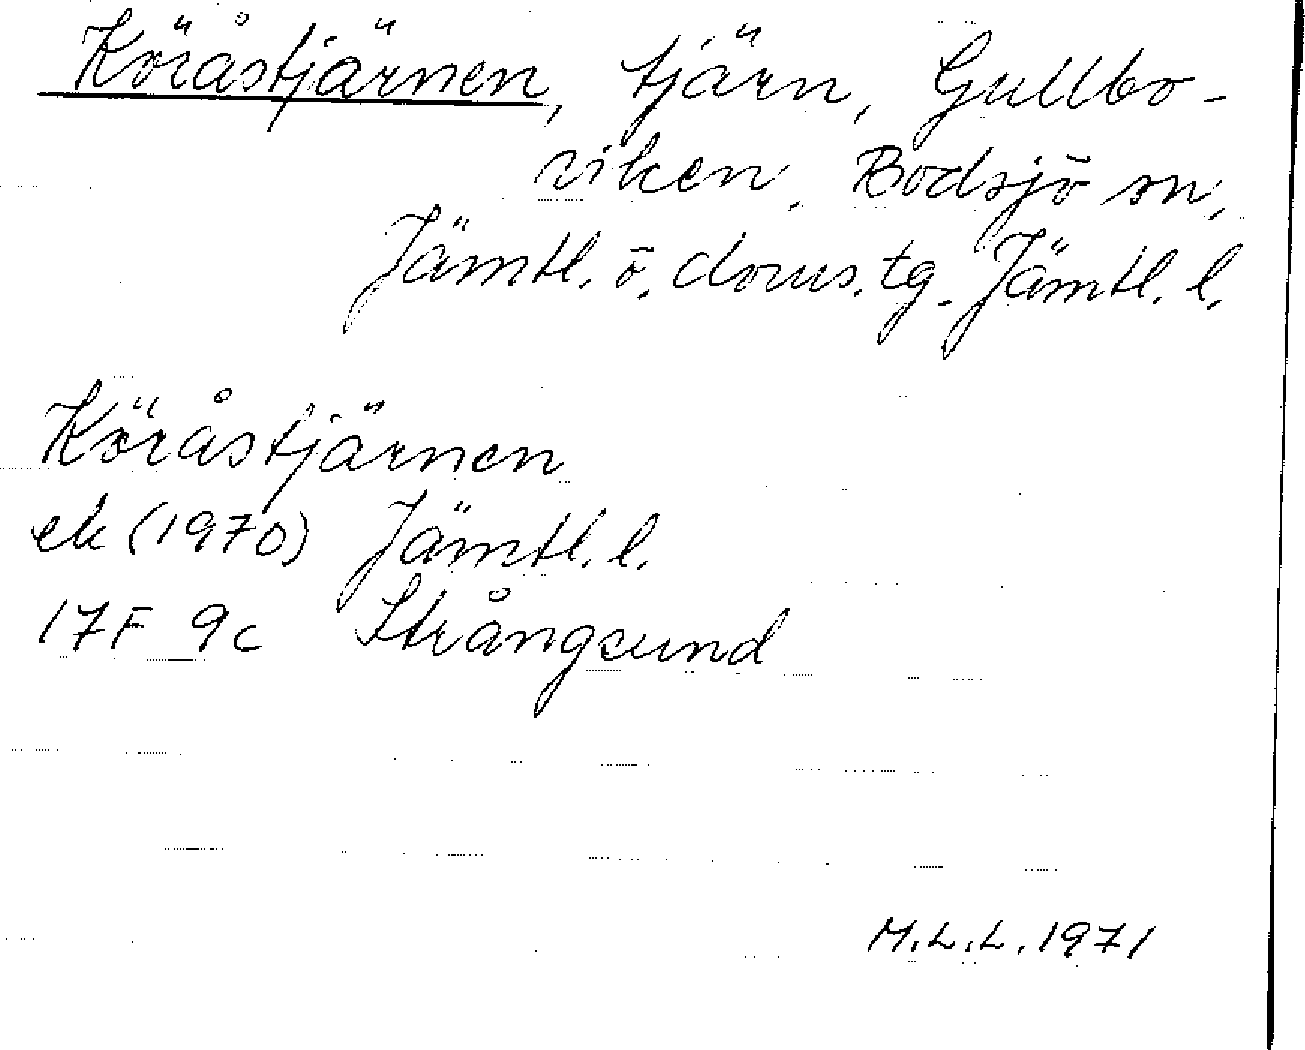 Köråstjärnen, tjärn, Gullbo-
viken, Bodsjö sn,
Jämtl. ö. doms. tg. Jämtl. l.
Köråstjärnen
ek (1970) Jämtl. l.
17F 9c Strångsund
M.L.L. 1971